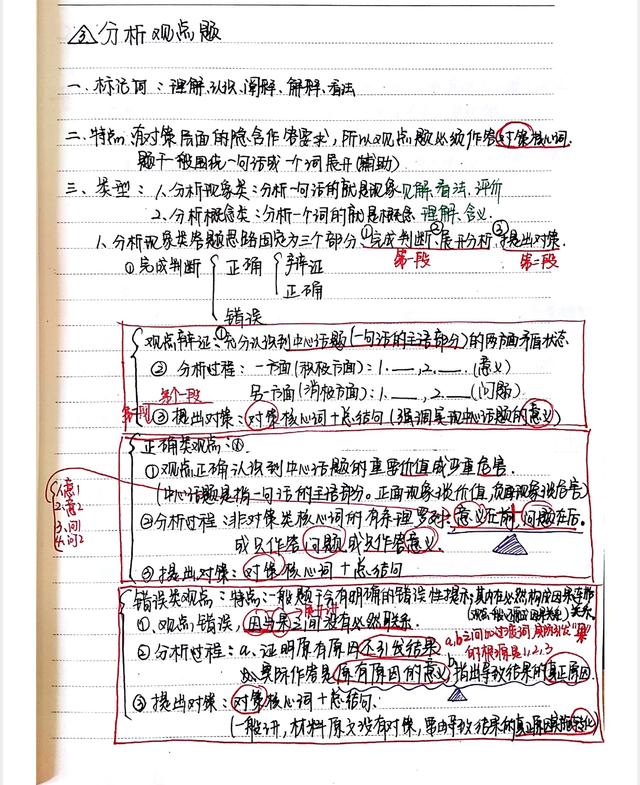 ③分析观点题
一、标记词：理解、认识、阐释、解释、看法
二、特点：有对策层面的隐含作答要求，所以观点题必须作答对策核心词.
题干一般围绕一句话或一个词展开(辅助)
三、类型：1.分析现象类：分析一句话的就是现象 见解、看法、评价
2.分析概念类：分析一个词的就是概念 理解、含义
1.分析现象类答题思路固定为三个部分①完成判断、②展开分析、③提出对策.
第一段 第二段
①完成判断 正确 辩证
正确
错误
观点辩证：①充分认识到中心话题(一句话的主语部分)的两方面矛盾状态
②分析过程：一方面(积极方面)：1.__，2.__(意义)
另一方面(消极方面)：1.__，2.__(问题)
第一段
③提出对策：对策核心词+总结句(强调实现中心话题的意义)
正确类观点：
①观点正确认识到中心话题的重要价值或严重危害.
(中心话题是指一句话的主语部分。正面现象谈价值，负面现象谈危害)
1.意1
2.意2
3.问1
4.问2
②分析过程：非对策类核心词的有条理罗列：意义在前，问题在后。
或只作答问题或只作答意义.
③提出对策：对策核心词+总结句
错误类观点：特点：一般题干会有明确的错误性提示；
①、观点错误，因与果之间没有必然联系. 展开讲
②分析过程：a、证明原有原因不引发结果 a,b之间加过渡词
的根源是1,2,3
b.指出导致结果的真正原因
实际作答是原有原因的意义
③提出对策：对策核心词+总结句.
(一般讲，材料原文没有对策，要由导致结果的真正原因转化)